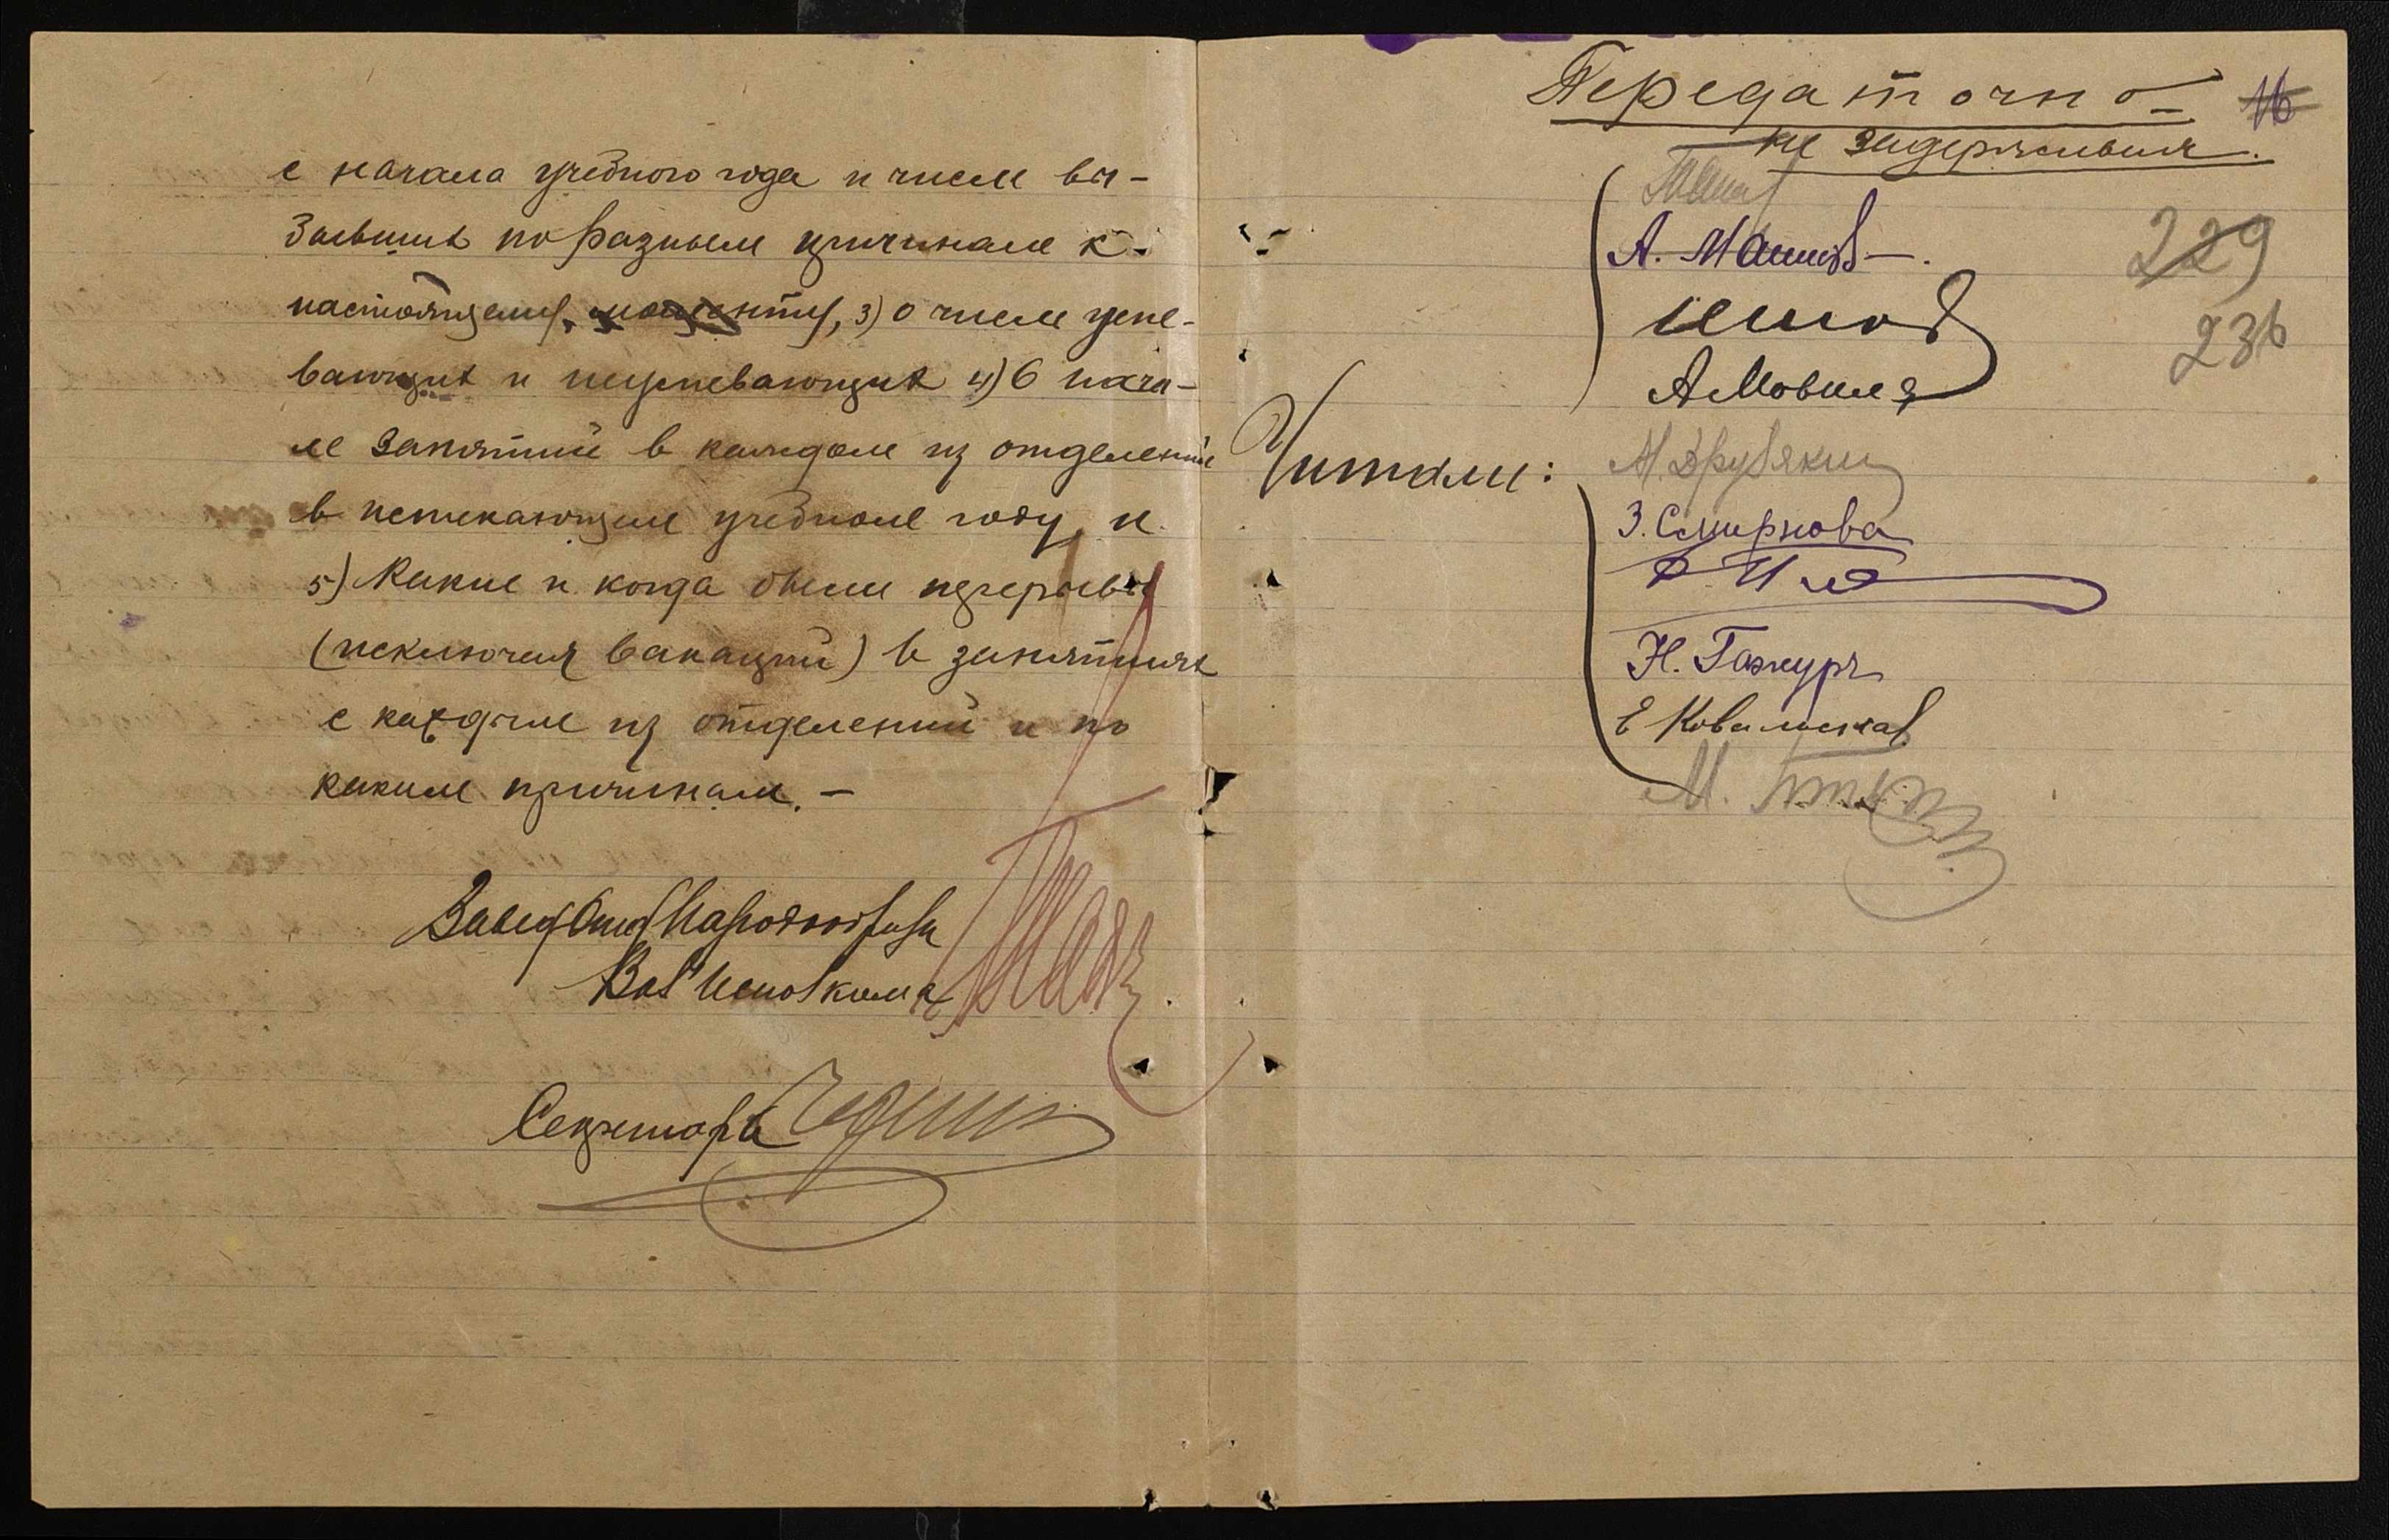 с начала учебного года и числе вы-
бывших по разным причинам к
настоящему моменту, 3) о числе успе-
вающих и неуспевающих 4) О нача-
ле занятий в каждом из отделений
в истекающем учебном году, и
5) Какие и когда были перерывы
(исключая вакаций) в занятиях
с каждым из отделений и по
каким причинам. —
Завед Отд Народнобраза
Вол Исполкома
Секретарь
Передаточно
не задерживая.
16
229
236
Читали:
А. Машков
А Мовиля
М. Друбякин
З. Смирнова
Н. Гажур
Е Ковальская
М.